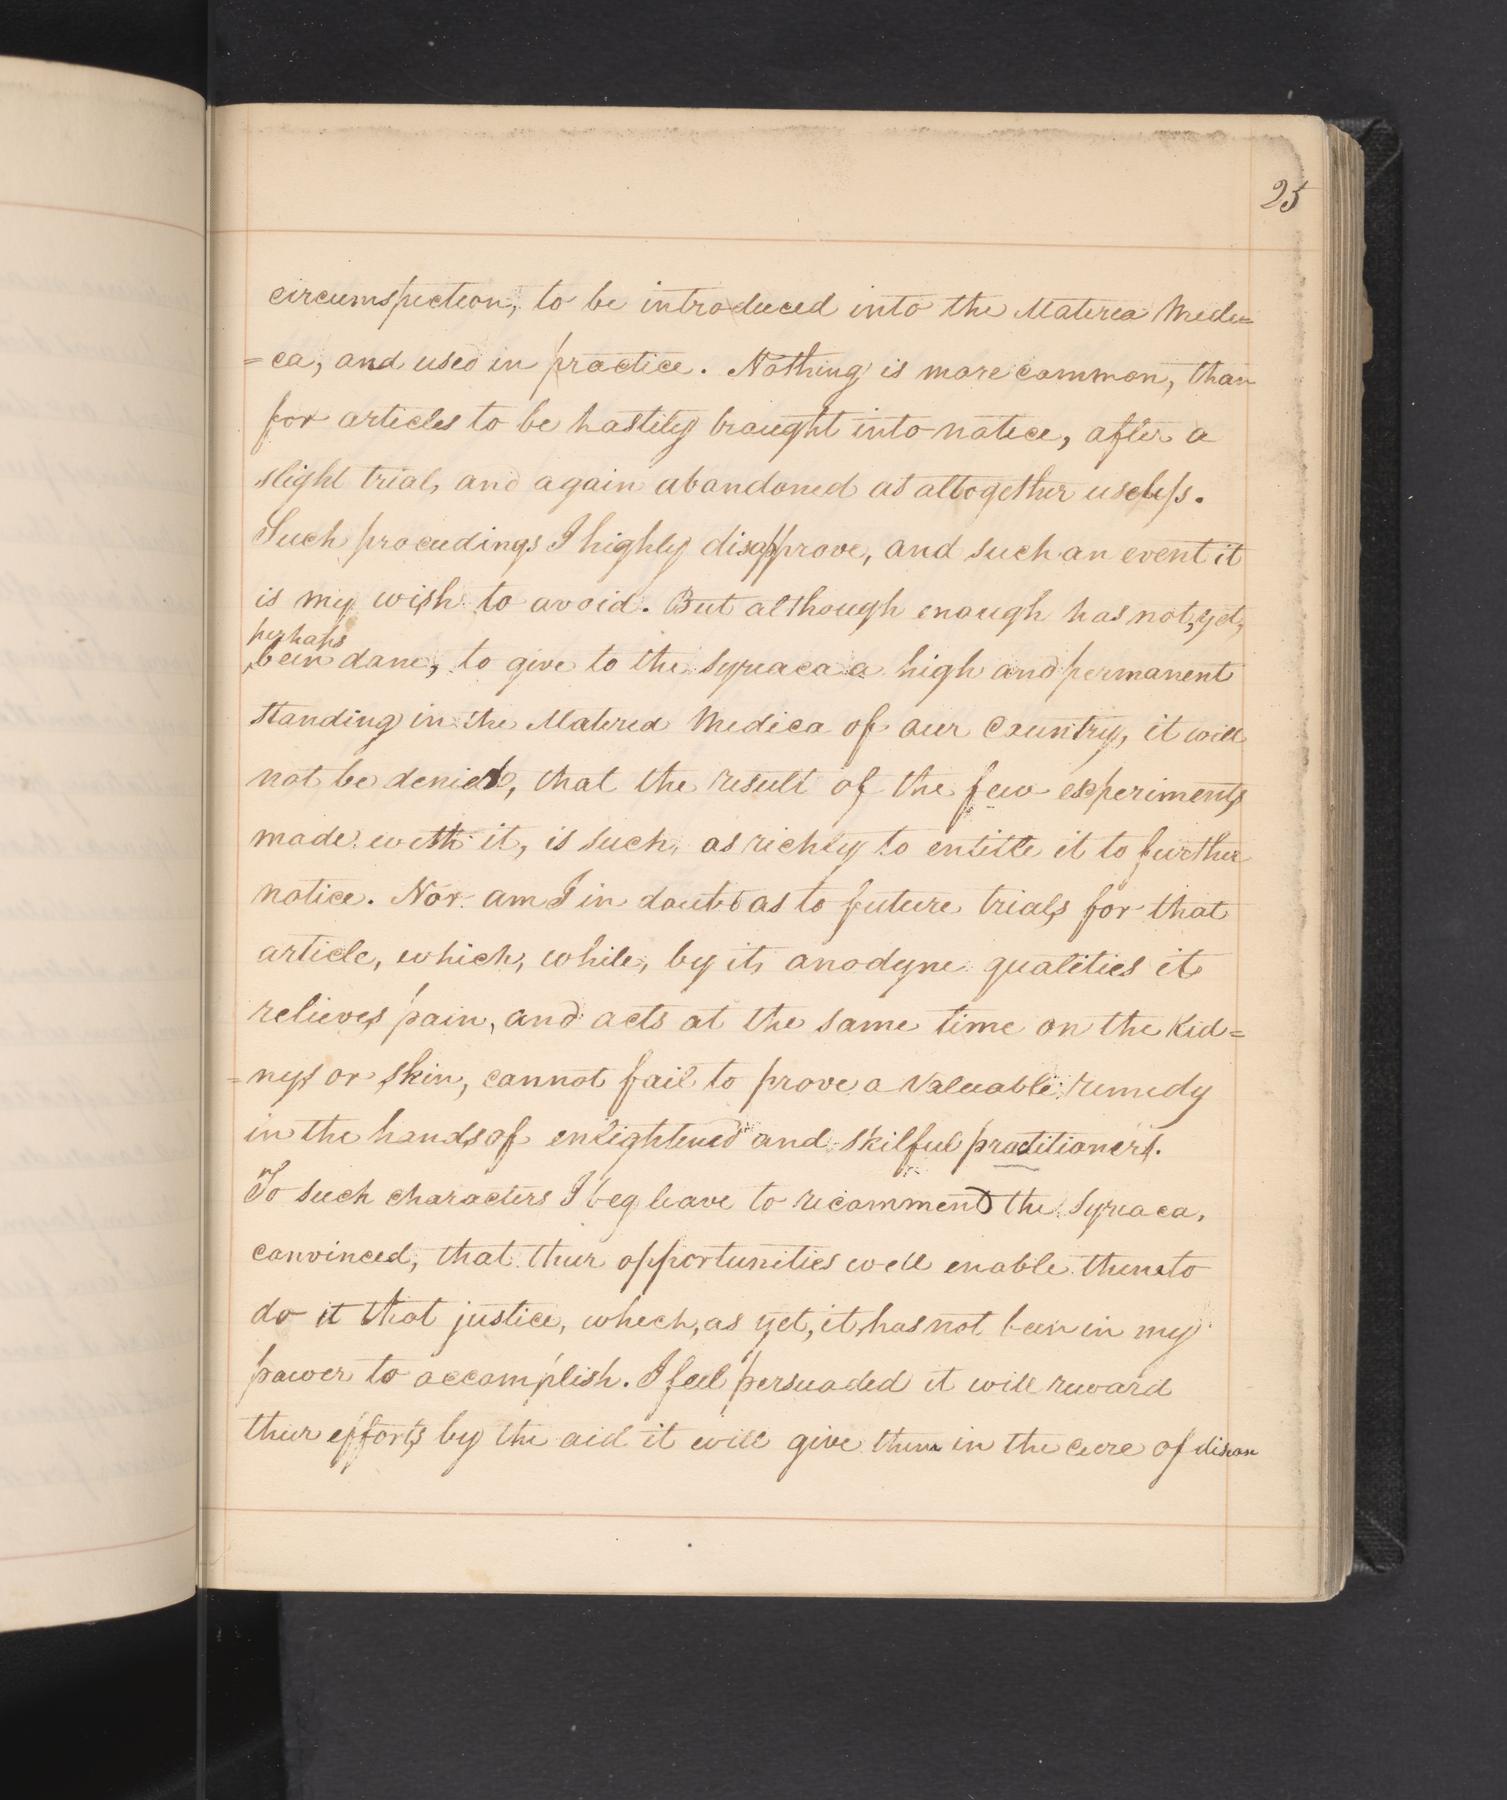 25
circumspection, to be introduced into the Materea Medi=
=ca, and used in practice. Nothing is more common, than
for articles to be hastily brought into notice, after a
slight trial, and again abandoned as altogether useless.
Such proceedings I highly disapprove, and such an event it
is my wish to avoid. But although enough has not, yet,
perhaps
been done, to give to the Syriaca a high and permanent
standing in the Materea Medica of our Country, it will
not be denied, that the result of the few experiments
made with it, is such, as richly to entitle it to further
notice. Nor am I in doubt as to future trials for that
article, which, while, by its anodyne qualities it
relieves pain, and acts at the same time on the Kid=
=neys or skin, cannot fail to prove a valuable remedy
in the hands of enlightened and skilful practitioners.
To such characters I beg leave to recommend the Syriaca,
convinced, that their opportunities will enable them to
do it that justice, which, as yet, it has not been in my
power to accomplish. I feel persuaded it will reward
their efforts by the aid it will give them in the cure of disease